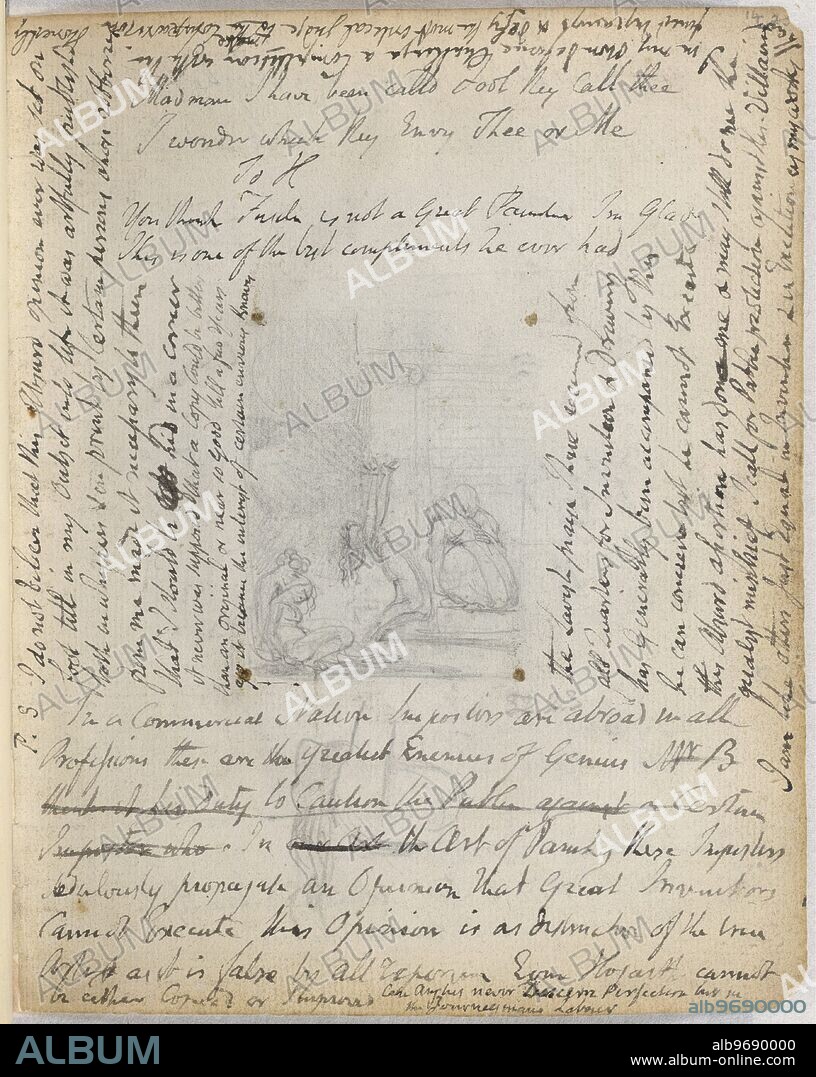 Madman I have been calld Fool they Call thee
I wonder which they Envy Thee or Me
To H
You think Fuseli is not a Great Painter Im Glad
This is one of the best compliments he ever had
P. S. I do not believe that this Absurd opinion ever was set on
foot till in my Outset into life it was artfully publishd
both in whispers & in print by Certain persons whose
from me made it necessary to them
that I should be hid in a corner
it never was supposed that a Copy Could be better
than an original or near so Good till a few Years
ago it became the interest of certain envious Knaves
The lavish praise I have received from
all Quarters for Invention & Drawing
has Generally been accompanied by this
he can conceive but he cannot Execute
this Absurd assertion has done me & may still do me the
greatest mischief I call for Public protection against these Villains
I am like others Just Equal in Invention & in Execution as my works
In my own defence Challenge a Competition with the
finest Engravings & defy the most critical judge to make the Comparison
Honestly
In a Commercial Nation Impostors are abroad in all
Professions these are the greatest Enemies of Genius Mr B
thinks it his duty to Caution the Public against a certain
Impostor who. In the Art of Painting these Impostors
sedulously propagate an Opinion that Great Inventors
Cannot Execute this Opinion is as destructive of the true
Artist as it is false by all Experience Even Hogarth cannot
be either Copied or Improved Can Anglus never Discern Perfection but in
the Journeymans Labour
ALBUM
alb9690000
ALBUM
alb9690000
www.album-online.com